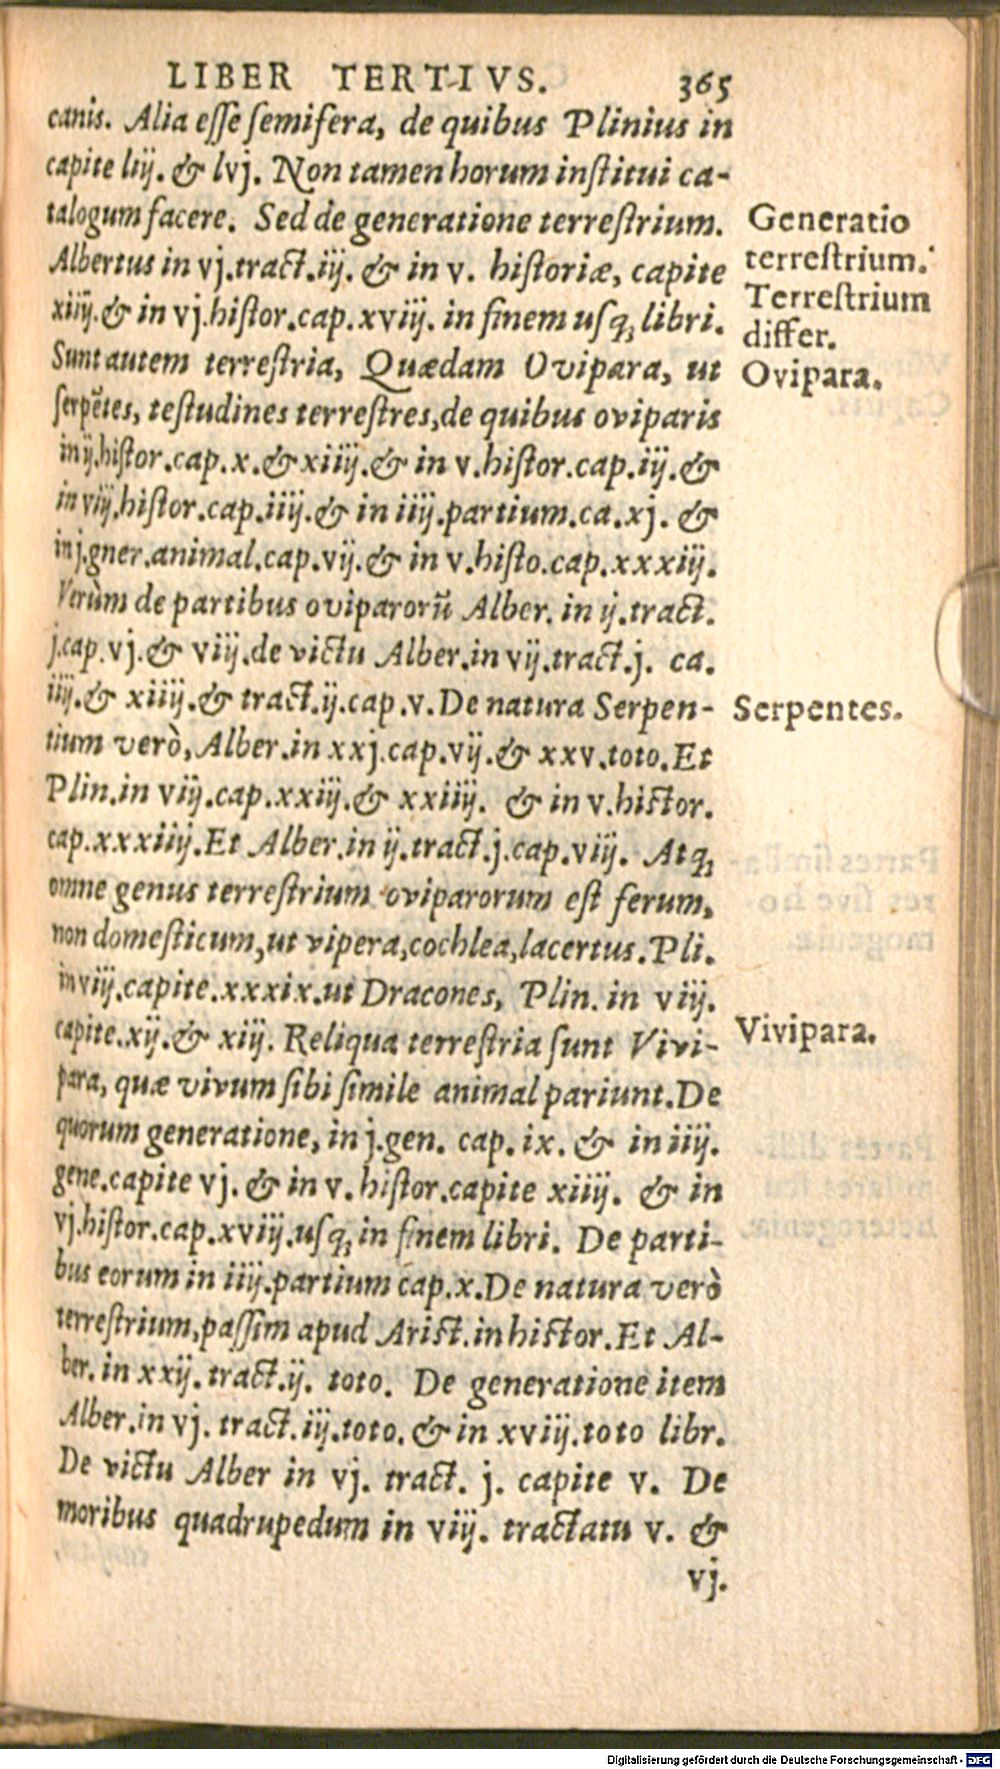 LIBER TERTIVS. 365
canis. Alia esse semifera, de quibus Plinius in
capite liij. & lvj. Non tamen horum institui ca-
talogum facere. Sed de generatione terrestrium.
Albertus in vj.tract.iij. & in v. historiæ, capite
xiiij.& in vj.histor.cap.xviij. in finem usq; libri.
Sunt autem terrestria, Quædam Ovipara, ut
serpẽtes, testudines terrestres,de quibus oviparis
in ij.histor.cap.x.& xiiij.& in v.histor.cap.ij.&
in viij.histor.cap.iiij.& in iiij.partium.ca.xj. &
in j.gner.animal.cap.vij.& in v.histo.cap.xxxiij.
Verùm de partibus oviparorũ Alber. in ij.tract.
j.cap.vj.& viij.de victu Alber.in vij.tract.j. ca.
iiij.& xiiij.& tract.ij.cap.v.De natura Serpen-
tium verò, Alber.in xxj.cap.vij.& xxv.toto.Et
Plin.in viij.cap.xxiij.& xxiiij. & in v.histor.
cap.xxxiiij.Et Alber.in ij.tract.j.cap.viij. Atq;
omne genus terrestrium oviparorum est ferum,
non domesticum,ut vipera,cochlea,lacertus.Pli.
in viij.capite.xxxix.ut Dracones, Plin. in viij.
capite.xij.& xiij. Reliqua terrestria sunt Vivi-
para, quæ vivum sibi simile animal pariunt.De
quorum generatione, in j.gen. cap.ix. & in iiij.
gene.capite vj. & in v. histor.capite xiiij. & in
vj.histor.cap.xviij.usq; in finem libri. De parti-
bus eorum in iiij.partium cap.x.De natura verò
terrestrium,passim apud Arist.in histor.Et Al-
ber. in xxij.tract.ij. toto. De generatione item
Alber.in vj. tract.iij.toto. & in xviij.toto libr.
De victu Alber in vj. tract. j. capite v. De
moribus quadrupedum in viij. tractatu v. &
vj.
Generatio
terrestrium.
Terrestrium
differ.
Ovipara.
Serpentes.
Vivipara.
Digitalisierung gefördert durch die Deutsche Forschungsgemeinschaft - DFG